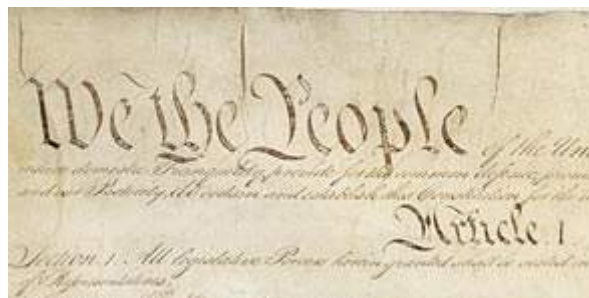 We the People of the Uni
insure domestic Tranquility, provide for the common defence, promo
and our Posterity, do ordain and establish this Constitution for the
Article I
Section 1. All legislative Powers herein granted shall be vested in
of Representatives.